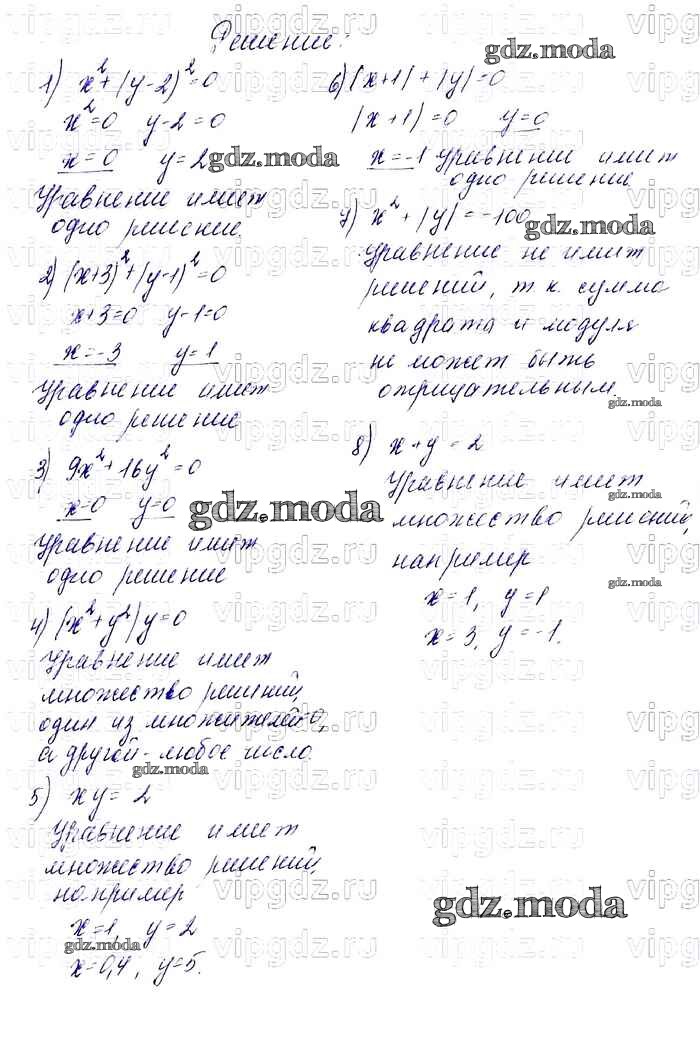 Решение:
1) x²+(y-2)²=0
x²=0 y-2=0
x=0 y=2
Уравнение имеет
одно решение.
2) (x+3)²+(y-1)²=0
x+3=0 y-1=0
x=-3 y=1
Уравнение имеет
одно решение
3) 9x²+16y²=0
x=0 y=0
Уравнение имеет
одно решение
4) (x²+y²)y=0
Уравнение имеет
множество решений,
один из множителей 0,
а другой - любое число.
5) xy=2
Уравнение имеет
множество решений,
например
x=1, y=2
x=0,4, y=5.
6) |x+1|+|y|=0
|x+1|=0 y=0
x=-1 Уравнение имеет
одно решение.
7) x²+|y|=-100
Уравнение не имеет
решений, т.к. сумма
квадрата и модуля
не может быть
отрицательным.
8) x+y=2
Уравнение имеет
множество решений,
например
x=1, y=1
x=3, y=-1.
gdz.moda
gdz.moda
gdz.moda
gdz.moda
gdz.moda
gdz.moda
gdz.moda
gdz.moda
gdz.moda
gdz.moda
vipgdz.ru